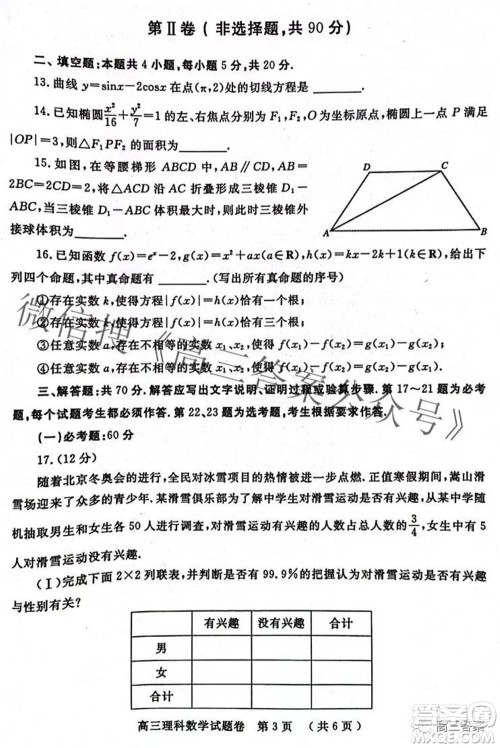 第Ⅱ卷(非选择题,共90分)
二、填空题:本题共4小题,每小题5分,共20分.
13.曲线y=sinx-2cosx在点(π,2)处的切线方程是________.
14.已知椭圆x²/16+y²/7=1的左、右焦点分别为F₁,F₂,O为坐标原点,椭圆上一点P满足
|OP|=3,则△F₁PF₂的面积为________.
15.如图,在等腰梯形ABCD中,AB∥CD,AB=
2BC=2CD=2,将△ACD沿AC折叠形成三棱锥D₁-
ABC,当三棱锥D₁-ABC体积最大时,则此三棱锥外
接球体积为________.
D
C
A
B
16.已知函数f(x)=eˣ-2,g(x)=x²+ax(a∈R),h(x)=kx-2k+1(k∈R),给出下
列四个命题,其中真命题有________.(写出所有真命题的序号)
①存在实数k,使得方程|f(x)|=h(x)恰有一个根;
②存在实数k,使得方程|f(x)|=h(x)恰有三个根;
③任意实数a,存在不相等的实数x₁,x₂,使得f(x₁)-f(x₂)=g(x₁)-g(x₂);
④任意实数a,存在不相等的实数x₁,x₂,使得f(x₁)-f(x₂)=g(x₂)-g(x₁).
三、解答题:共70分.解答应写出文字说明、证明过程或演算步骤.第17~21题为必考
题,每个试题考生都必须作答.第22、23题为选考题,考生根据要求作答.
(一)必考题:60分
17.(12分)
随着北京冬奥会的举行,全民对冰雪项目的热情被进一步点燃.正值寒假期间,嵩山滑
雪场迎来了众多的青少年.某滑雪俱乐部为了解中学生对滑雪运动是否有兴趣,从某中学随
机抽取男生和女生各50人进行调查,对滑雪运动有兴趣的人数占总人数的3/4,女生中有5
人对滑雪运动没有兴趣.
(Ⅰ)完成下面2×2列联表,并判断是否有99.9%的把握认为对滑雪运动是否有兴趣
与性别有关?
有兴趣 没有兴趣 合计
男
女
合计
高三理科数学试题卷 第3页 (共6页)
微信搜《高三答案公众号》
高三答案